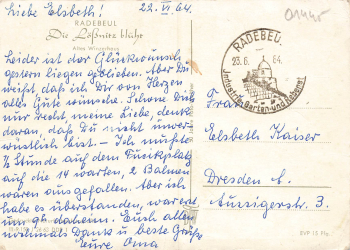 Liebe Elsbeth! 22. VI. 64.
RADEBEUL
Die Lößnitz blüht
Altes Winzerhaus
Leider ist der Glückwunsch
gestern liegen geblieben. Aber Du
weißt, daß ich Dir von Herzen
alles Gute wünsche. Schone Dich
nur recht, meine Liebe, denk
daran, daß Du nicht unver-
wüstlich bist. – Ich mußte
½ Stunde auf dem Fučikplatz
auf die 14 warten, 2 Bahnen
waren ausgefallen. Aber ich
habe es überstanden, war
um daheim. Euch allen
nochmals Dank u. beste Grüße
Eure Oma
RADEBEUL
23. 6. 64.
Industrie, Garten- und
Frau
Elsbeth Kaiser
Dresden A.
Aussigerstr. 3.
EVP 15 Pfg.